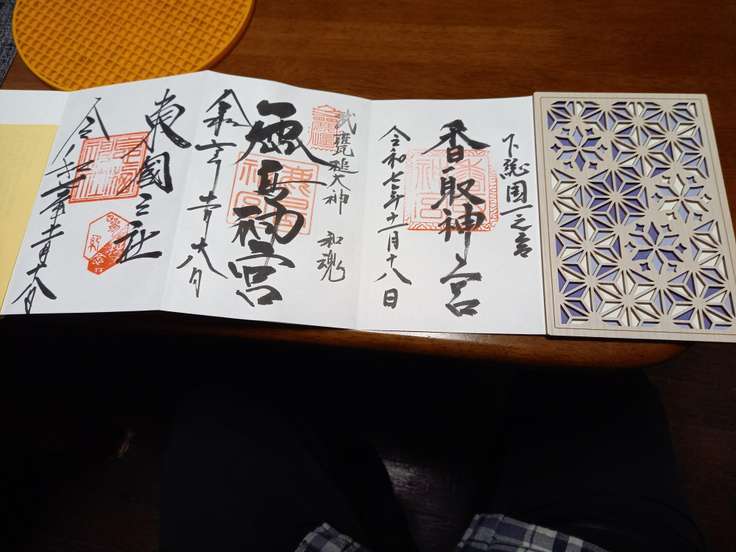 下総国一之宮
香取神宮
令和七年十一月十八日
武甕槌大神 和魂
鹿島神宮
令和七年十一月十八日
東國三社
令和七年十一月十八日